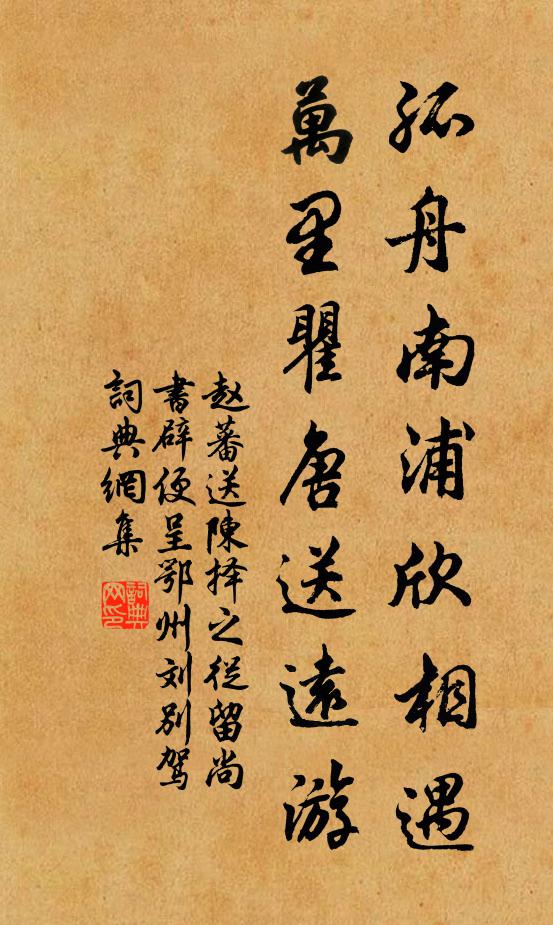 孤舟南浦欣相遇
萬里瞿唐送遠游
赵蕃送陳择之從留尚
書辟便呈鄂州刘别驾
詞典網集
詞典网印